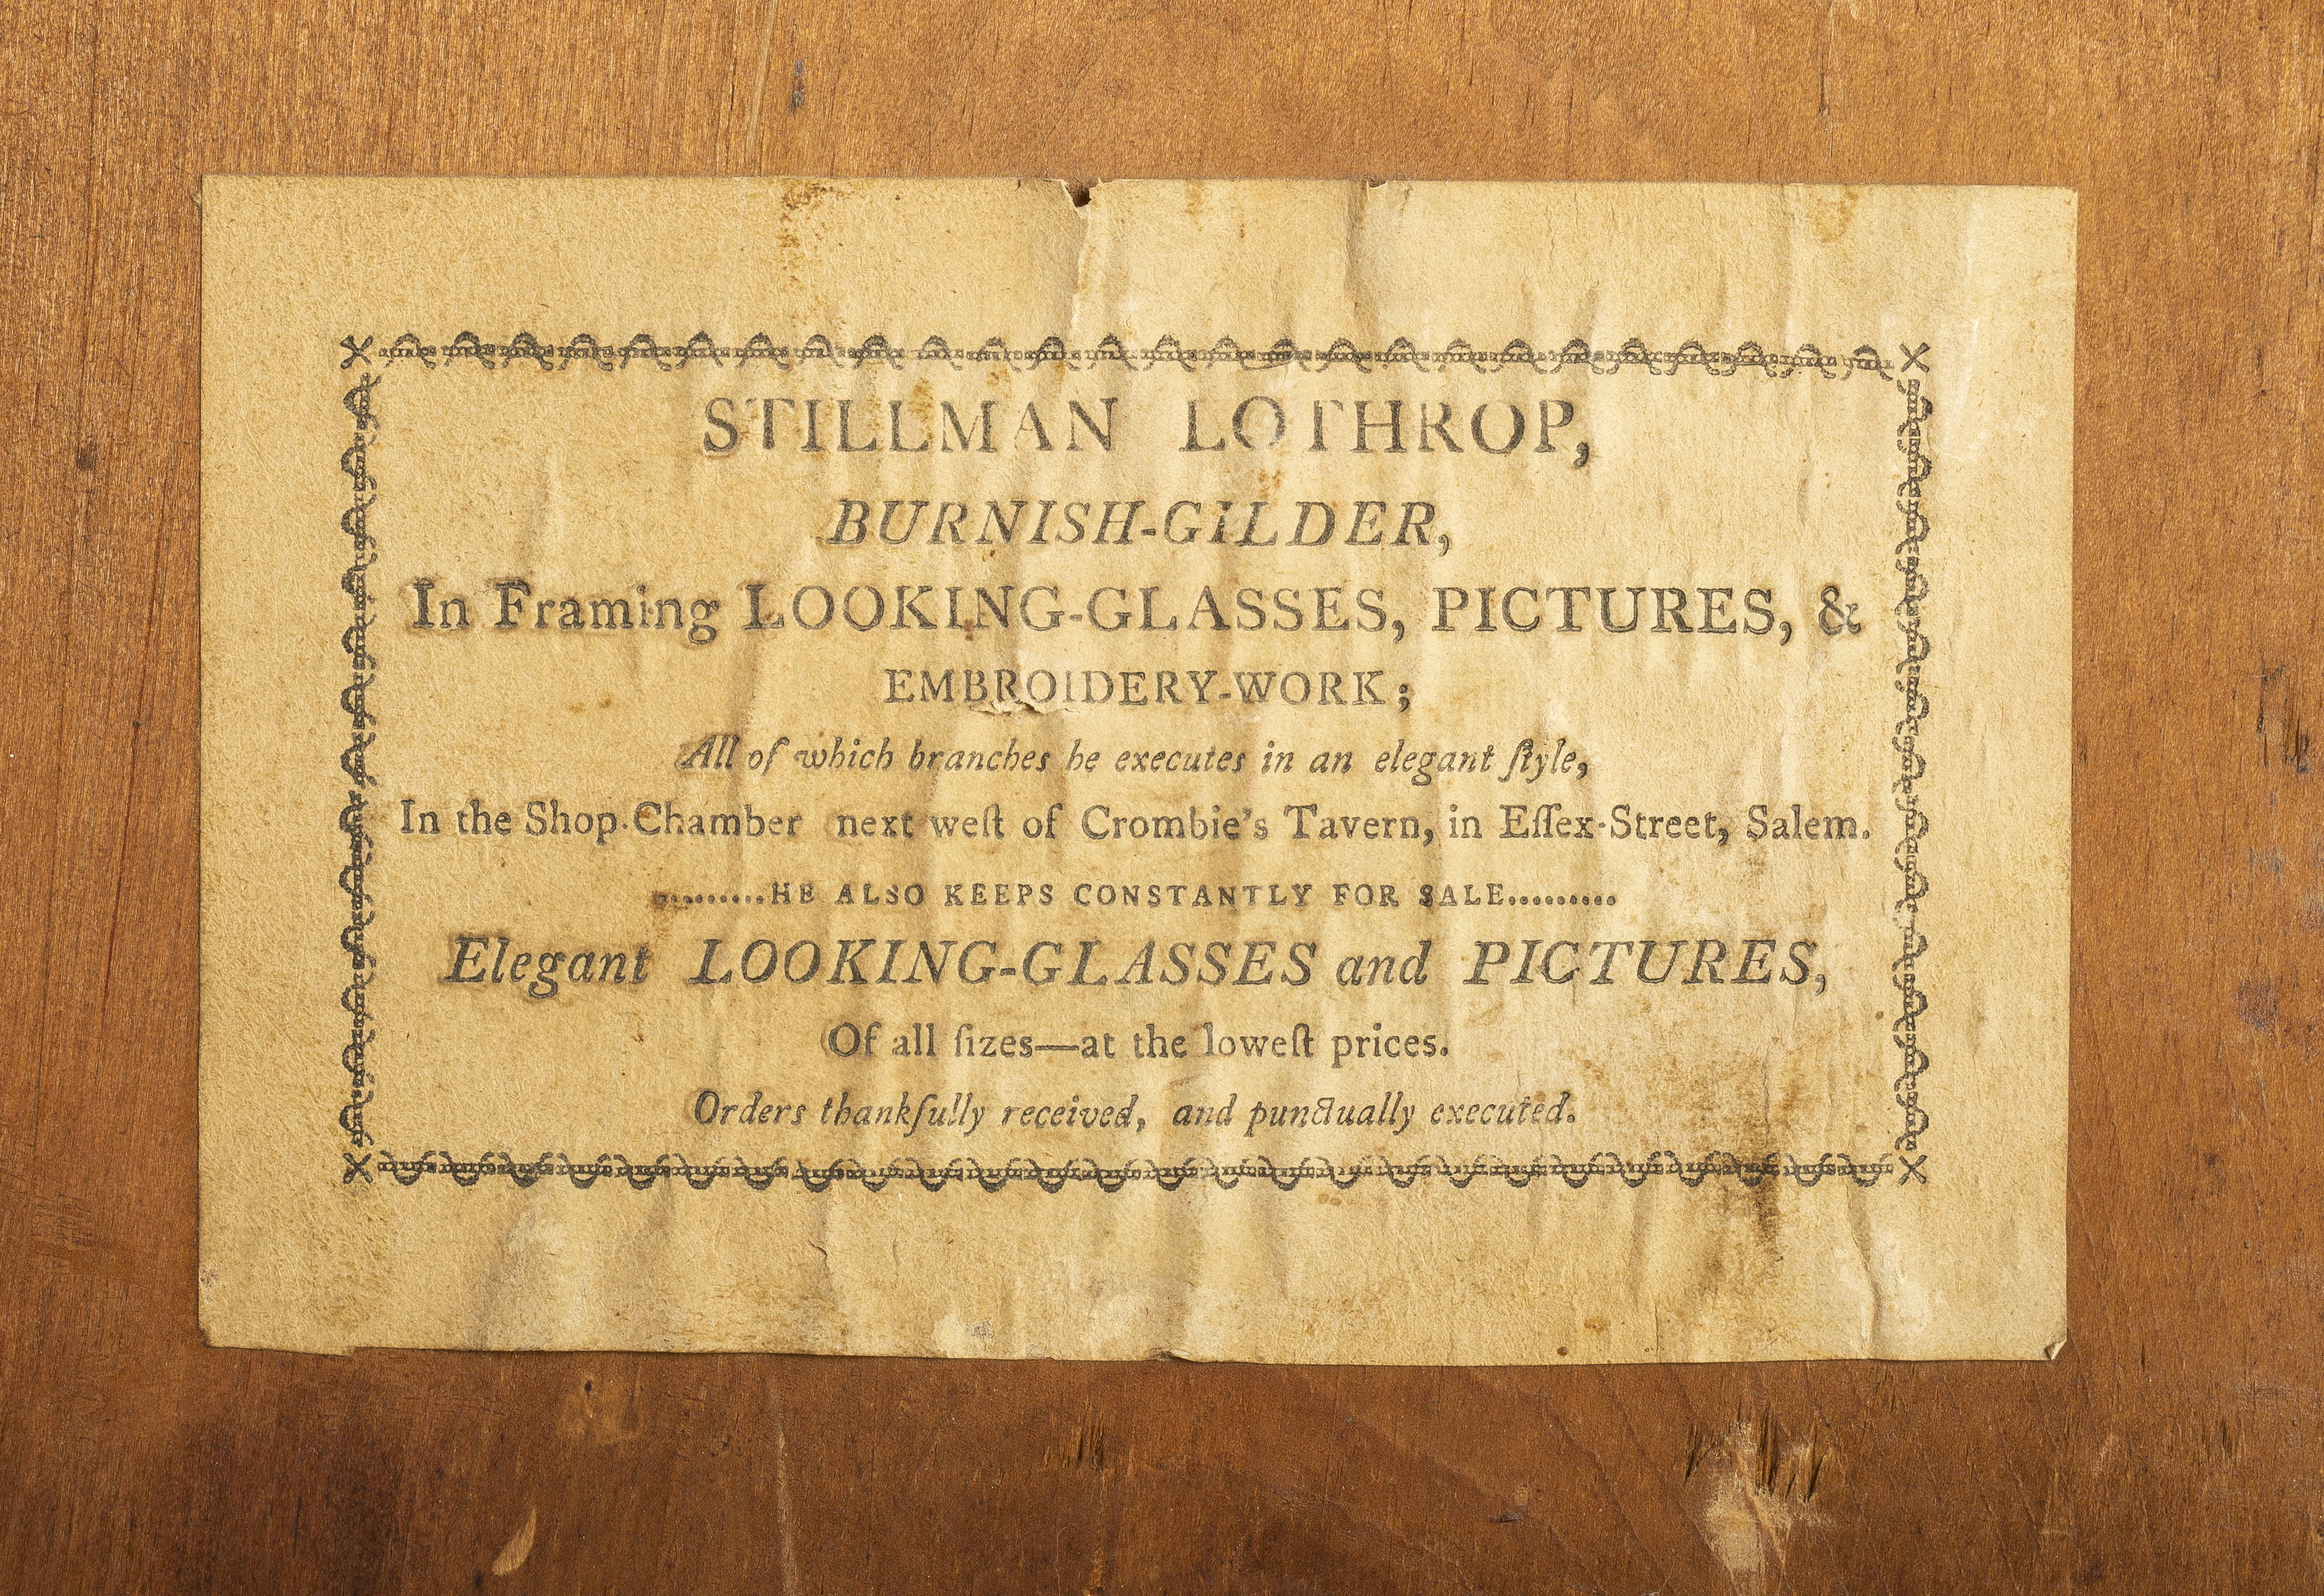 STILLMAN LOTHROP,
BURNISH-GILDER,
In Framing LOOKING-GLASSES, PICTURES, &
EMBROIDERY-WORK;
All of which branches he executes in an elegant ſtyle,
In the Shop-Chamber next weſt of Crombie's Tavern, in Eſſex-Street, Salem.
.........HE ALSO KEEPS CONSTANTLY FOR SALE.........
Elegant LOOKING-GLASSES and PICTURES,
Of all ſizes—at the loweſt prices.
Orders thankfully received, and punctually executed.